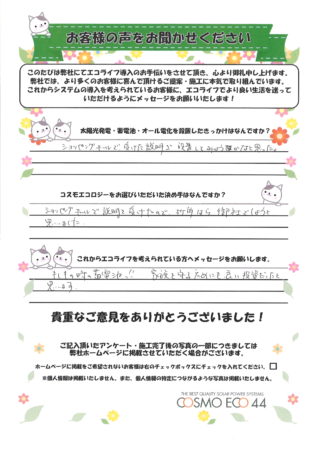 お客様の声をお聞かせください
このたびは弊社にてエコライフ導入のお手伝いをさせて頂き、心より御礼申し上げます。
弊社では、より多くのお客様に喜んで頂けるご提案・施工に本気で取り組んでいます。
これからシステムの導入を考えられているお客様に、エコライフでより良い生活を送って
いただけるようにメッセージをお願いいたします！
太陽光発電・蓄電池・オール電化を設置したきっかけはなんですか？
ショッピングモールで受けた説明で 設置してみよう と思った。
コスモエコロジーをお選びいただいた決め手はなんですか？
ショッピングモールで説明を受けたので、
思いました
これからエコライフを考えられている方へメッセージをお願いします。
もしもの時の蓄電池!! 家族を守るためにも良い投資だったと
思います
貴重なご意見をありがとうございました！
ご記入頂いたアンケート・施工完了後の写真の一部につきましては
弊社ホームページに掲載させていただく場合がございます。
ホームページに掲載をご希望されないお客様は右のチェックボックスにチェックを入れてください。
※個人情報は掲載いたしません、また、個人情報の特定につながるような写真は掲載いたしません。
THE BEST QUALITY SOLAR POWER SYSTEMS
COSMO ECO 44